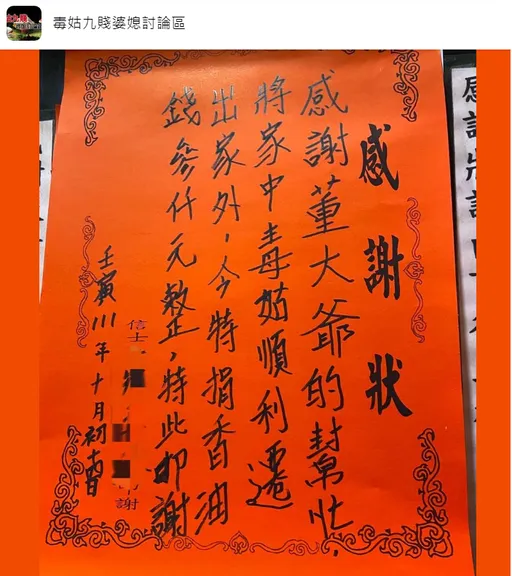 毒姑九賤婆媳討論區
感謝狀
感謝董大爺的幫忙，
將家中毒姑順利遷
出家外，今特捐香油
錢參仟元整，特此叩謝
信士
叩謝
壬寅111年十月初